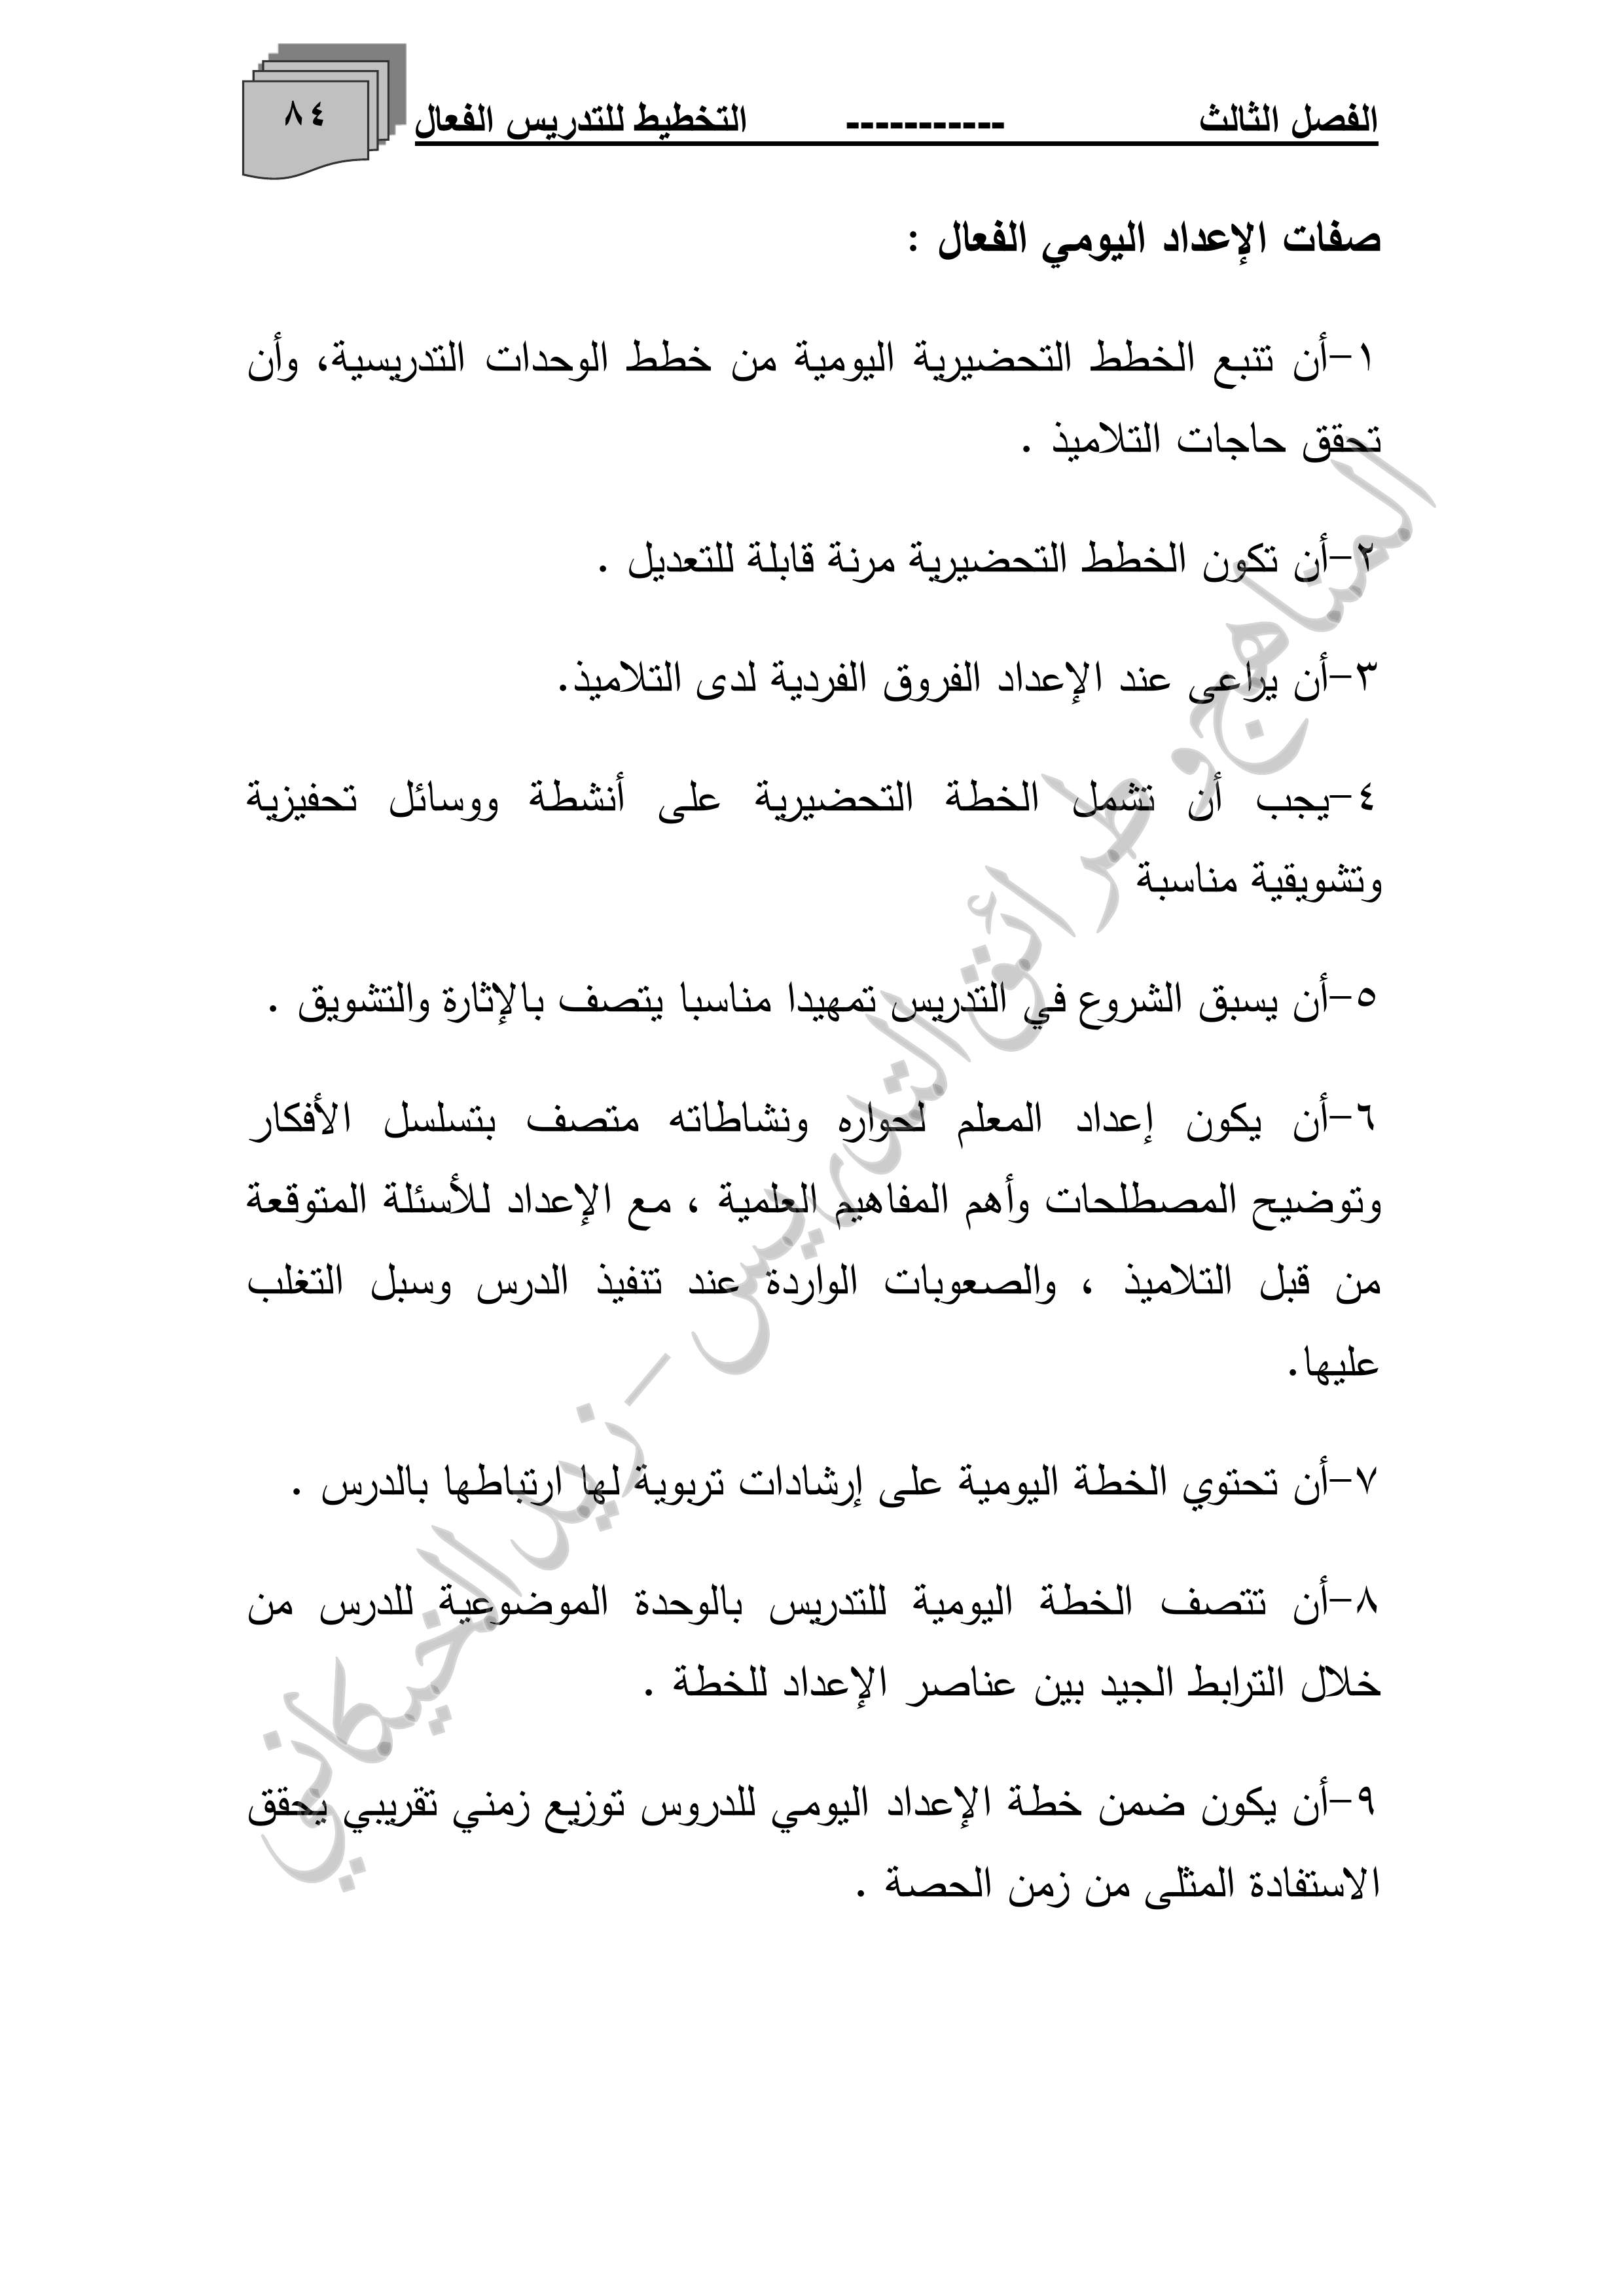 الفصل الثالث ----------- التخطيط للتدريس الفعال
٨٤
صفات الإعداد اليومي الفعال :
١-أن تنبع الخطط التحضيرية اليومية من خطط الوحدات التدريسية، وأن
تحقق حاجات التلاميذ .
٢-أن تكون الخطط التحضيرية مرنة قابلة للتعديل .
٣-أن يراعى عند الإعداد الفروق الفردية لدى التلاميذ.
٤-يجب أن تشمل الخطة التحضيرية على أنشطة ووسائل تحفيزية
وتشويقية مناسبة
٥-أن يسبق الشروع في التدريس تمهيدا مناسبا يتصف بالإثارة والتشويق .
٦-أن يكون إعداد المعلم لحواره ونشاطاته متصف بتسلسل الأفكار
وتوضيح المصطلحات وأهم المفاهيم العلمية ، مع الإعداد للأسئلة المتوقعة
من قبل التلاميذ ، والصعوبات الواردة عند تنفيذ الدرس وسبل التغلب
عليها.
٧-أن تحتوي الخطة اليومية على إرشادات تربوية لها ارتباطها بالدرس .
٨-أن تتصف الخطة اليومية للتدريس بالوحدة الموضوعية للدرس من
خلال الترابط الجيد بين عناصر الإعداد للخطة .
٩-أن يكون ضمن خطة الإعداد اليومي للدروس توزيع زمني تقريبي يحقق
الاستفادة المثلى من زمن الحصة .
المناهج وطرائق التدريس - زيد الخيكاني